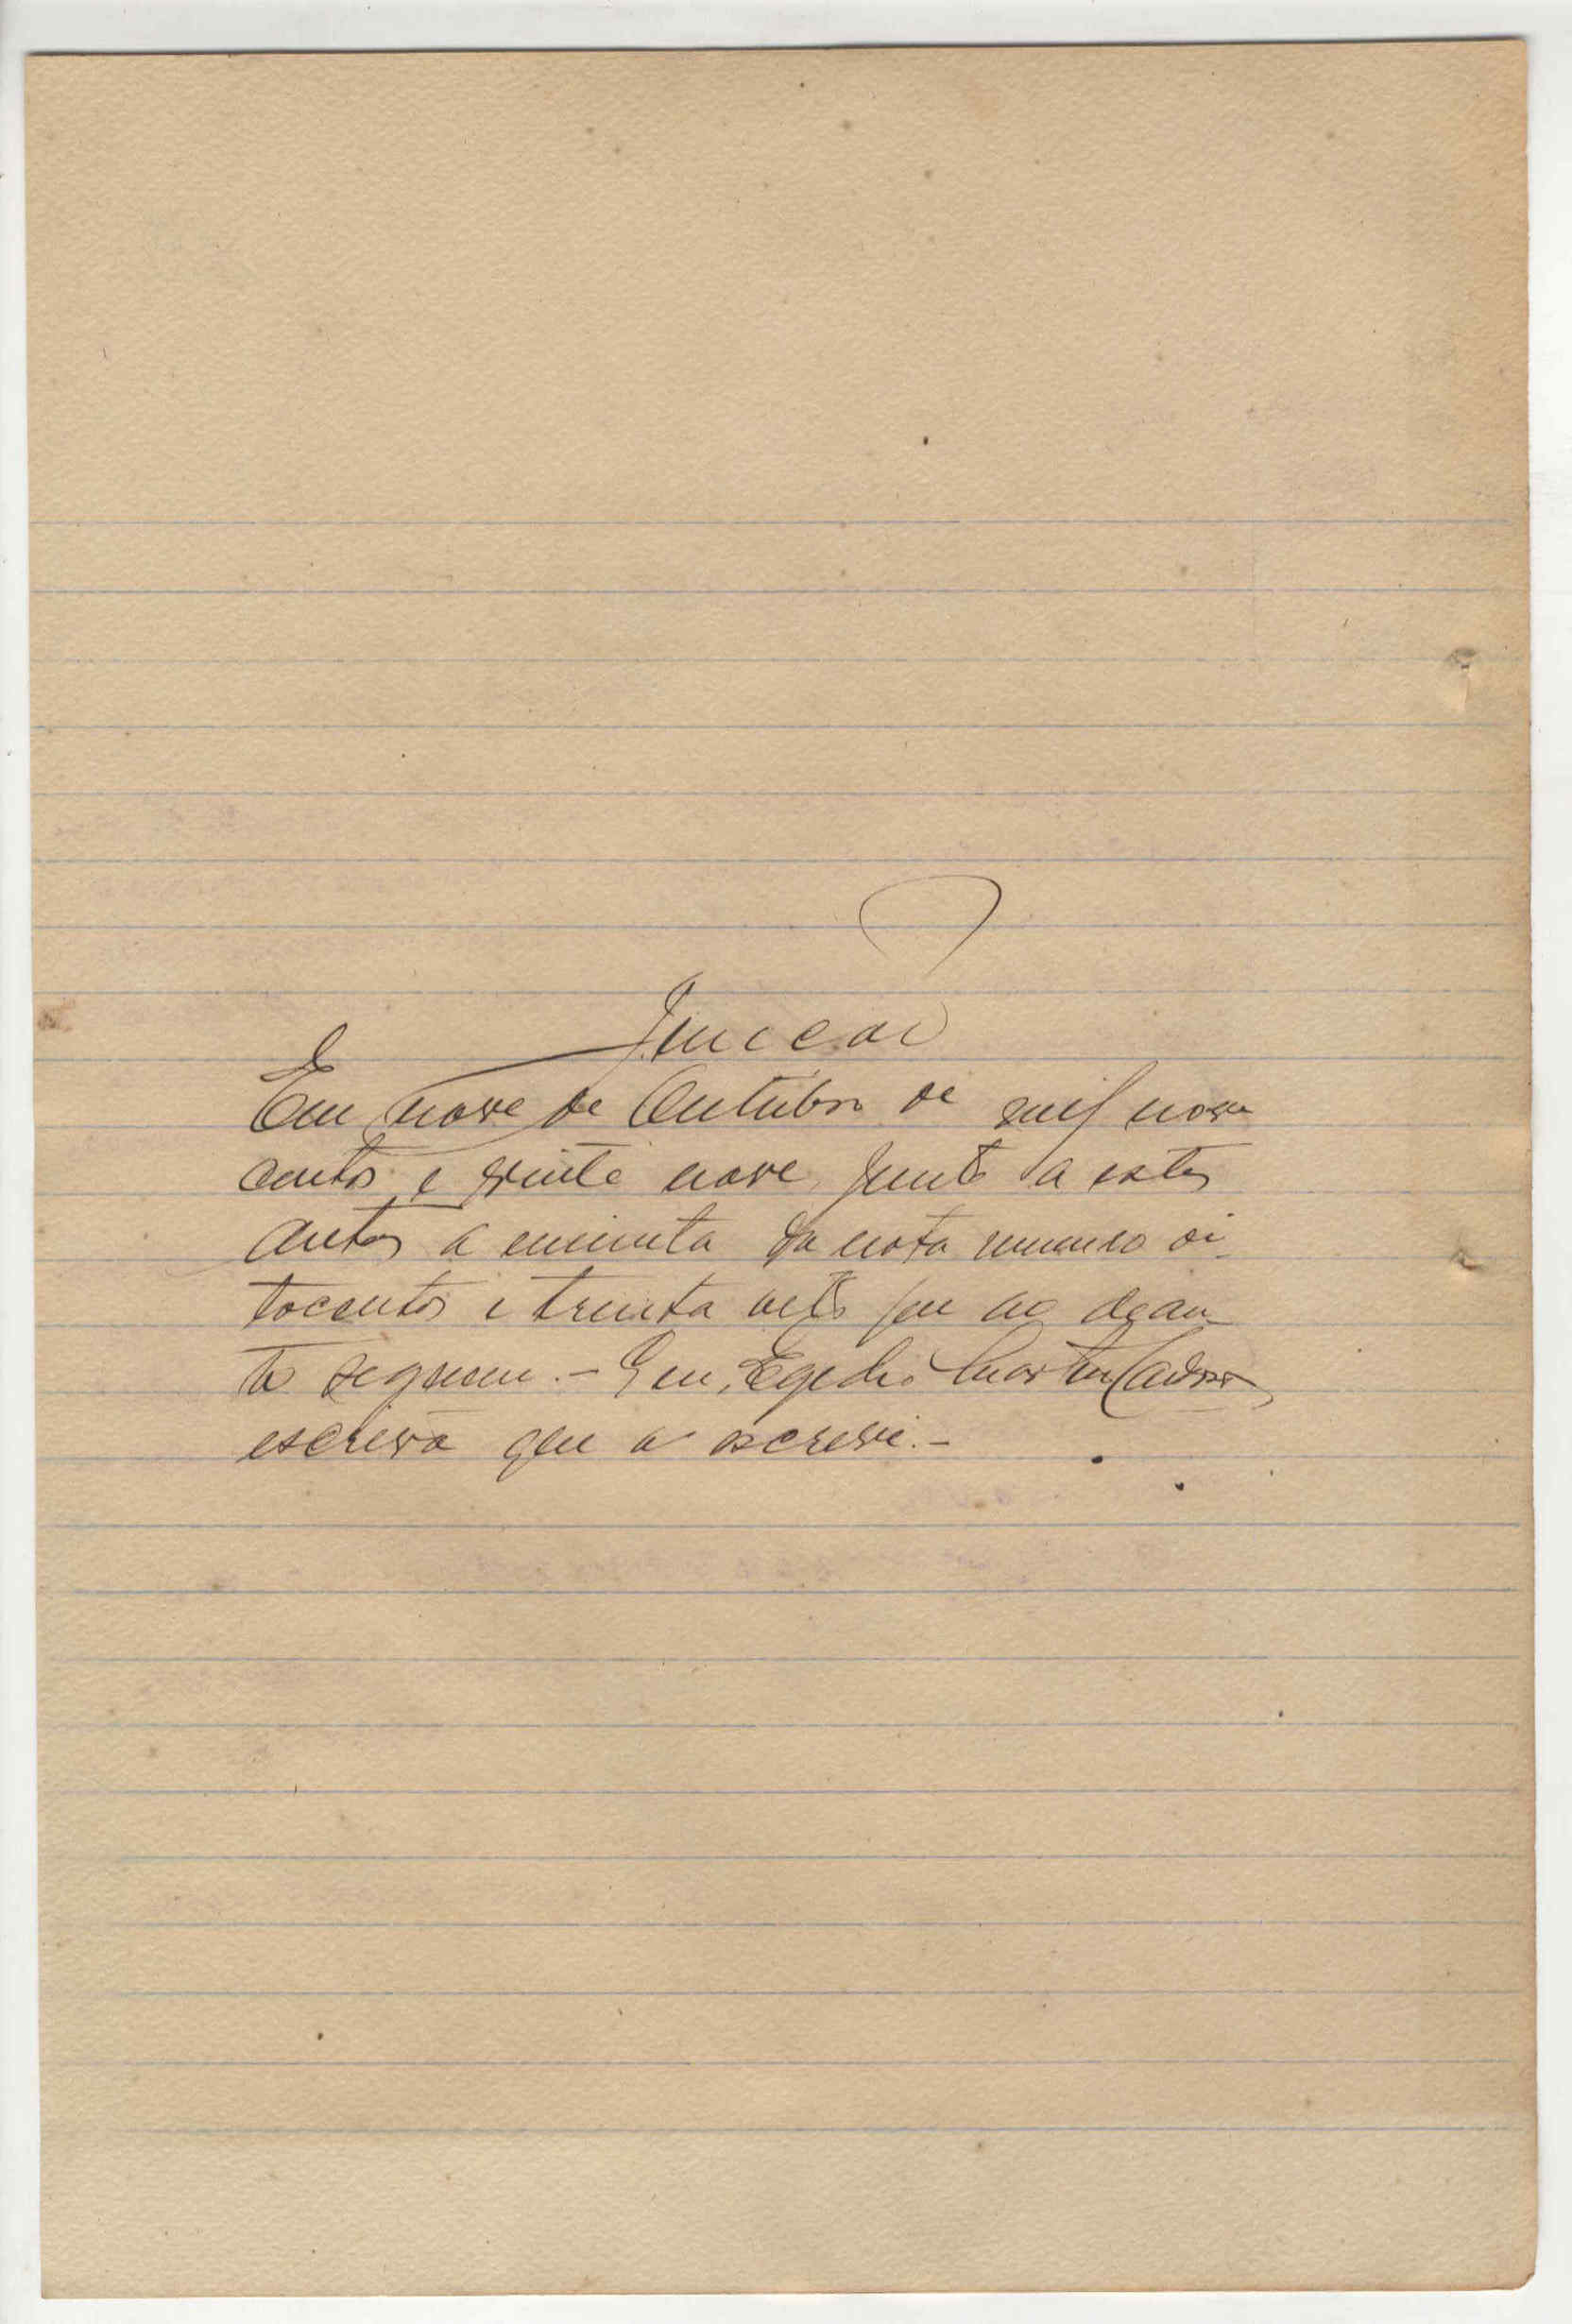 Juncção
Em nove de Outubro de mil nove
centos e vinte nove, junto a estes
autos a minuta da nota numero oi-
tocentos e trinta que ao dean-
te seguem. - Eu, Egedio Cardoso
escrivã que o escrevi. -